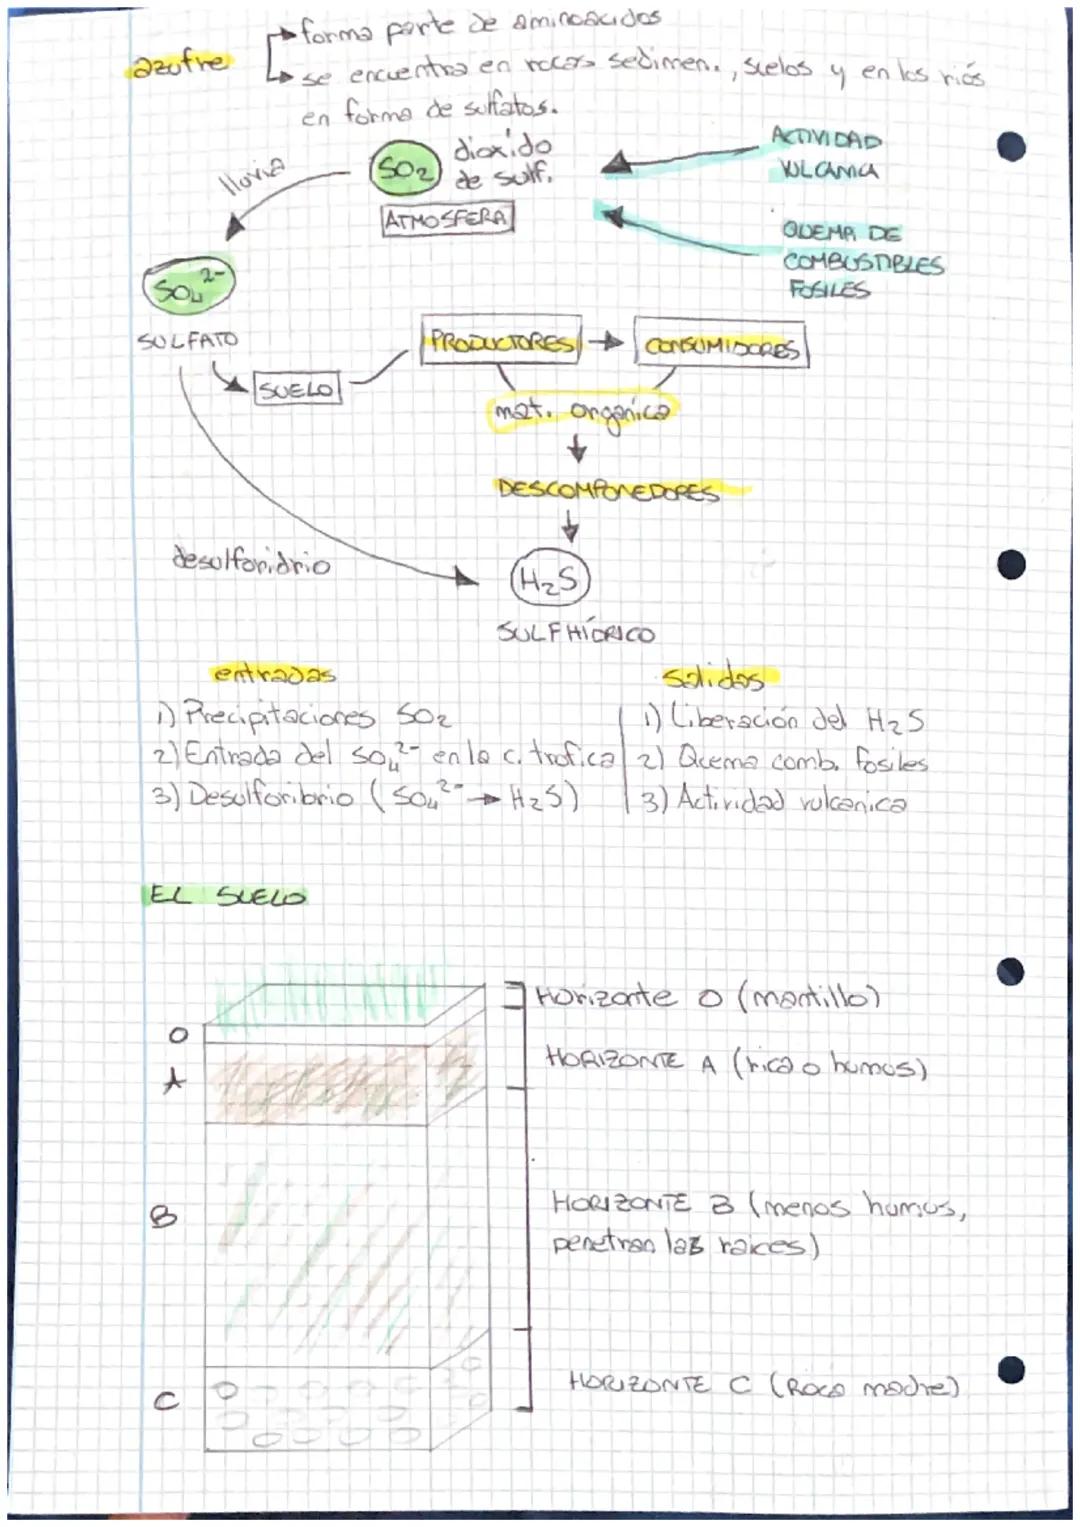 forma parte de aminoacidos
azufre
se encuentra en rocas sedimen., suelos y en los riós
en forma de sulfatos.
lluvia
SO2
dioxído
de sulf.
ATMOSFERA
ACTIVIDAD
VULCANICA
QUEMA DE
COMBUSTIBLES
FOSILES
SO4 2-
SULFATO
SUELO
PRODUCTORES
CONSUMIDORES
mat. organica
DESCOMPONEDORES
desulforidrio
H2S
SULFHÍDRICO
entradas
1) Precipitaciones SO2
2) Entrada del SO4 2- en la c. trofica
3) Desulforibrio (SO4 2- → H2S)
salidas
1) Liberación del H2S
2) Quema comb. fosiles
3) Actividad vulcanica
EL SUELO
O
A
B
C
Horizonte O (mantillo)
HORIZONTE A (rica o humus)
HORIZONTE B (menos humus,
penetran las raices)
HORIZONTE C (Roca madre)